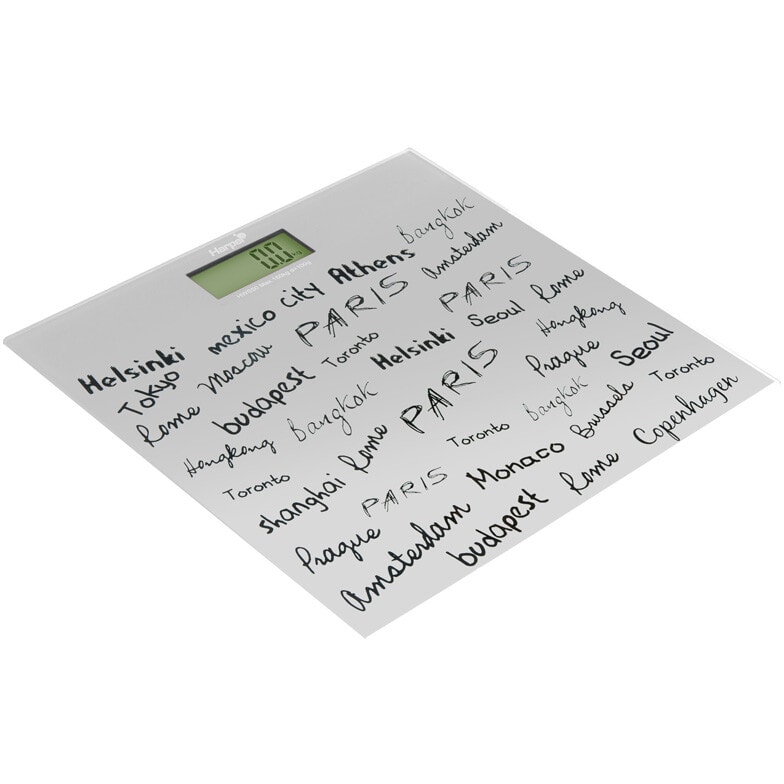 Harper
0.0 kg
Helsinki mexico city Athens Bangkok
Tokyo Moscow PARIS Amsterdam
Rome budapest Toronto PARIS
Hongkong Bangkok Helsinki Seoul Rome
Toronto Rome PARIS Prague Hongkong
shanghai PARIS Toronto Bangkok Seoul
Prague Monaco Brussels Toronto
Amsterdam budapest Rome Copenhagen